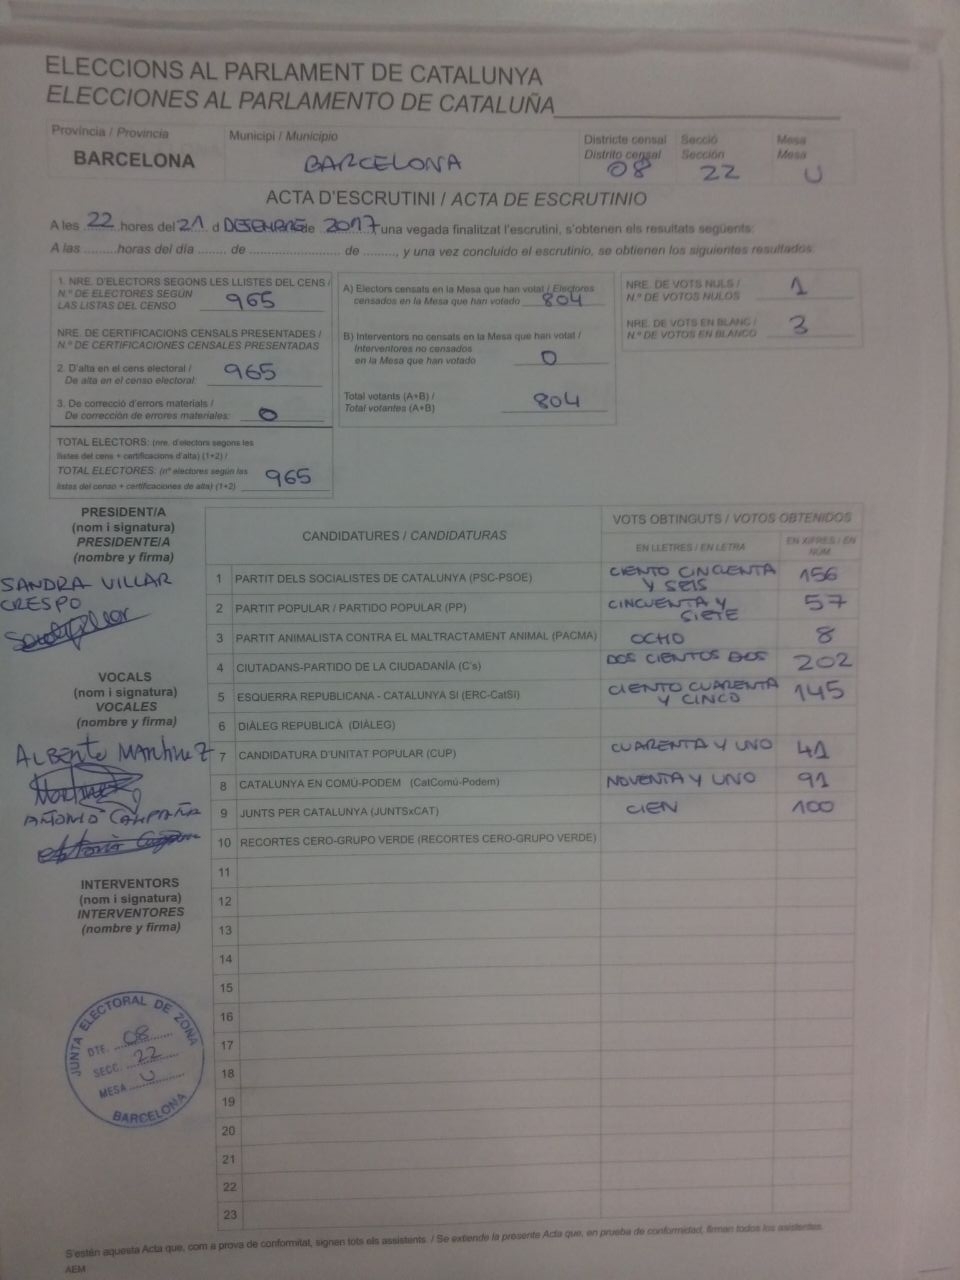 ELECCIONS AL PARLAMENT DE CATALUNYA
ELECCIONES AL PARLAMENTO DE CATALUÑA
Província / Provincia
BARCELONA
Municipi / Municipio
BARCELONA
Districte censal
Distrito censal
08
Secció
Sección
22
Mesa
Mesa
U
ACTA D'ESCRUTINI / ACTA DE ESCRUTINIO
A les 22 hores del 21 d DESEMBRE de 2017 una vegada finalitzat l'escrutini, s'obtenen els resultats següents:
A las ........horas del día ...... de ........................ de ........, y una vez concluido el escrutinio, se obtienen los siguientes resultados:
1. NRE. D'ELECTORS SEGONS LES LLISTES DEL CENS /
N.º DE ELECTORES SEGÚN
LAS LISTAS DEL CENSO
965
NRE. DE CERTIFICACIONS CENSALS PRESENTADES /
N.º DE CERTIFICACIONES CENSALES PRESENTADAS
2. D'alta en el cens electoral /
De alta en el censo electoral:
965
3. De correcció d'errors materials /
De corrección de errores materiales:
0
TOTAL ELECTORS: (nre. d'electors segons les
llistes del cens + certificacions d'alta) (1+2) /
TOTAL ELECTORES: (nº electores según las
listas del censo + certificaciones de alta) (1+2)
965
A) Electors censats en la Mesa que han votat / Electores
censados en la Mesa que han votado
804
B) Interventors no censats en la Mesa que han votat /
Interventores no censados
en la Mesa que han votado
0
Total votants (A+B) /
Total votantes (A+B)
804
NRE. DE VOTS NULS /
N.º DE VOTOS NULOS
1
NRE. DE VOTS EN BLANC /
N.º DE VOTOS EN BLANCO
3
PRESIDENT/A
(nom i signatura)
PRESIDENTE/A
(nombre y firma)
SANDRA VILLAR
CRESPO
VOCALS
(nom i signatura)
VOCALES
(nombre y firma)
ALBERTO MARTINEZ
ANTONIO CAMPAÑA
INTERVENTORS
(nom i signatura)
INTERVENTORES
(nombre y firma)
JUNTA ELECTORAL DE ZONA
DTE. 08
SECC. 22
MESA U
BARCELONA
CANDIDATURES / CANDIDATURAS
VOTS OBTINGUTS / VOTOS OBTENIDOS
EN LLETRES / EN LETRA
EN XIFRES / EN NÚM.
1 PARTIT DELS SOCIALISTES DE CATALUNYA (PSC-PSOE) CIENTO CINCUENTA Y SEIS 156
2 PARTIT POPULAR / PARTIDO POPULAR (PP) CINCUENTA Y SIETE 57
3 PARTIT ANIMALISTA CONTRA EL MALTRACTAMENT ANIMAL (PACMA) OCHO 8
4 CIUTADANS-PARTIDO DE LA CIUDADANÍA (C's) DOS CIENTOS DOS 202
5 ESQUERRA REPUBLICANA - CATALUNYA SI (ERC-CatSí) CIENTO CUARENTA Y CINCO 145
6 DIÀLEG REPUBLICÀ (DIÀLEG)
7 CANDIDATURA D'UNITAT POPULAR (CUP) CUARENTA Y UNO 41
8 CATALUNYA EN COMÚ-PODEM (CatComú-Podem) NOVENTA Y UNO 91
9 JUNTS PER CATALUNYA (JUNTSxCAT) CIEN 100
10 RECORTES CERO-GRUPO VERDE (RECORTES CERO-GRUPO VERDE)
11
12
13
14
15
16
17
18
19
20
21
22
23
S'estén aquesta Acta que, com a prova de conformitat, signen tots els assistents. / Se extiende la presente Acta que, en prueba de conformidad, firman todos los asistentes.
AEM